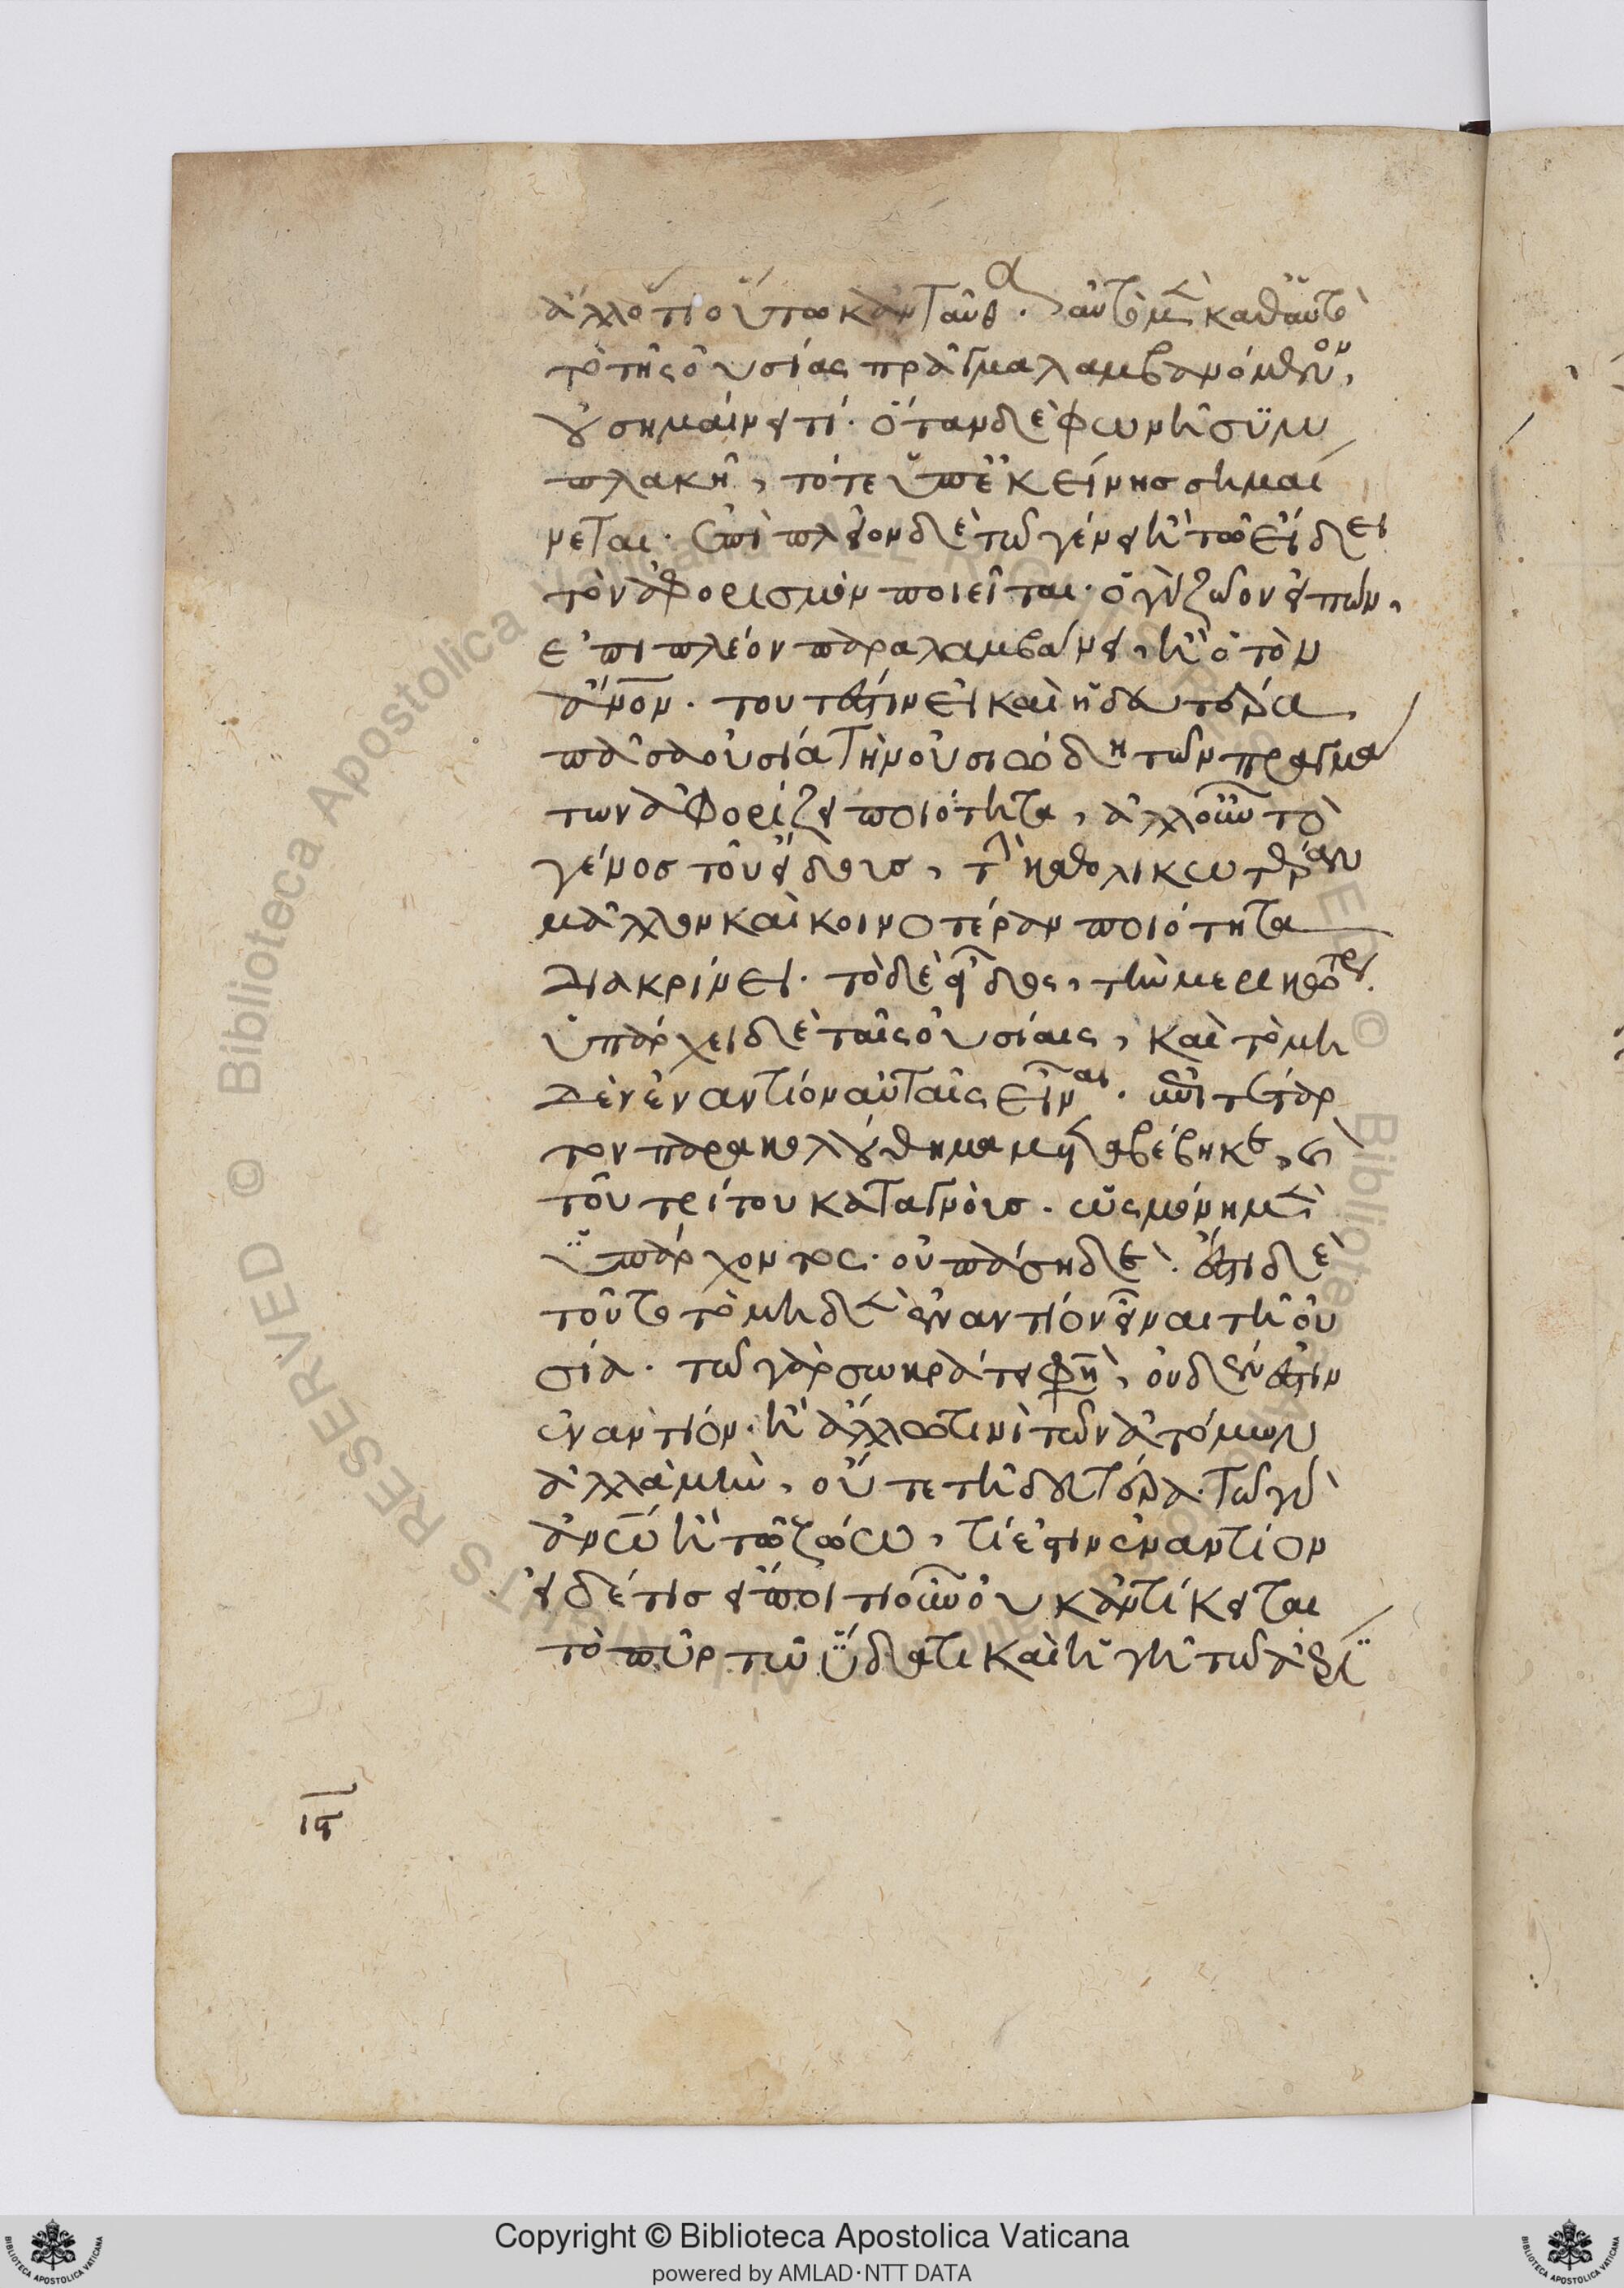 ἄλλό τι οὕτω κἀνταῦθα. αὐτὸ μὲν καθαὑτὸ
τὸ τῆς οὐσίας πρᾶγμα λαμβανόμενον,
οὐ σημαίνει τί· ὅταν δὲ φωνῆ συμ
πλακῆ, τότε ὑπ' ἐκείνησ σημαί
νεται· ἐπὶ πλεῖον δὲ τῶ γένει ἢ τῶ εἴδει
τὸν ἀφορισμὸν ποιεῖται· ὁ γὰρ ζῶον εἰπὼν,
ἐπι πλέον παραλαμβάνει, ἢ ὁ τὸν
ἄνον. τουτέστιν εἰ καὶ ἡ δευτέρα
πᾶσα οὐσία τὴν οὐσιώδη τῶν πραγμά
των ἀφορίζει ποιότητα, ἀλλ' οὖν τὸ
γένοσ τοῦ εἴδουσ, τὴν καθολικωτέραν
μᾶλλον καὶ κοινοτέραν ποιότητα
διακρίνει. τὸ δὲ εἶδος, τὴν μερικωτέραν.
ὑπάρχει δὲ ταῖς οὐσίαις, καὶ τὸ μη
δὲν ἐναντίον αὐταῖς εἶναι.
τοῦ τρίτου καταγμένουσ. ὡς μόνη μὲν
ὑπάρχοντος. οὐ πάση δὲ. ἔστι δὲ
τοῦτο τὸ μηδὲν ἐναντίον εἶναι τῆ οὐ
σία. τῶ γὰρ σωκράτει φησὶ, οὐδέν ἐστιν
ἐναντίον· ἢ ἄλλω τινὶ τῶν ἀτόμων
ἀλλὰ μὴν, οὔτε τῆ δευτέρα. τῶ γὰρ
ἀνω ἢ τῶ ζώω, τί ἐστιν ἐναντίον
εἰ δέ τισ εἴποι τι οὖν οὐκ ἀντίκειται
τὸ πῦρ τῶ ὕδατι καὶ ἡ γῆ τῶ ἀέρι
ις
Copyright © Biblioteca Apostolica Vaticana
powered by AMLAD·NTT DATA